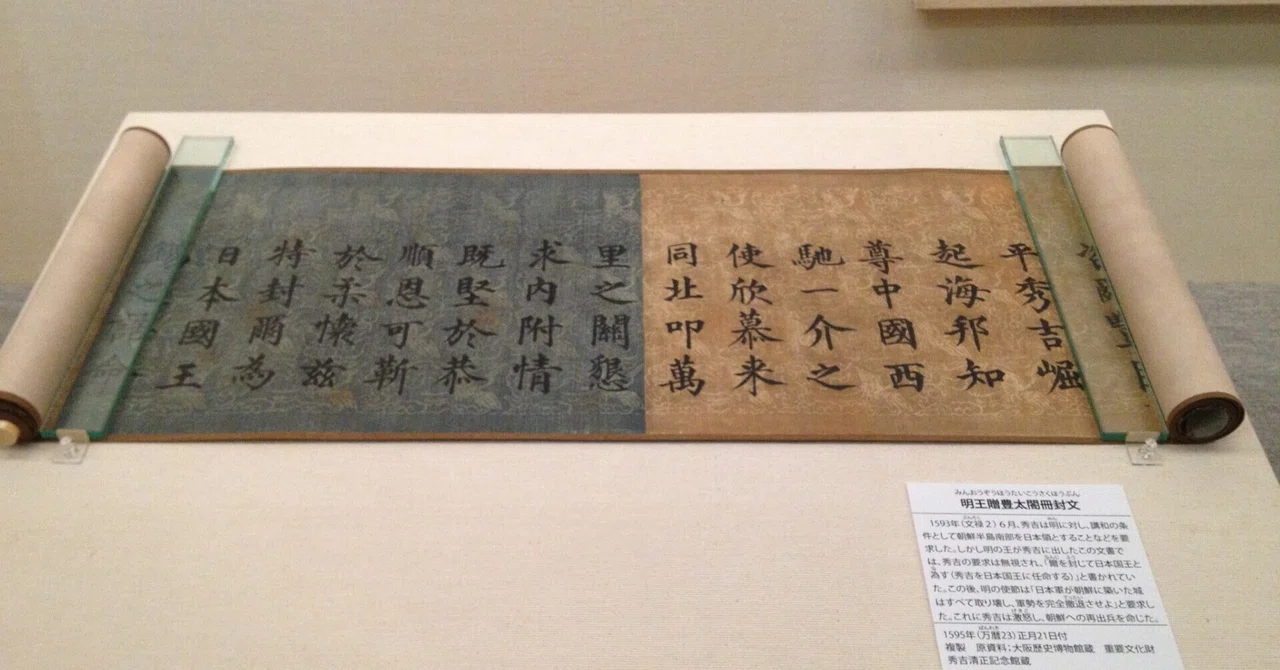 平秀吉崛
起海邦知
尊中國西
馳一介之
使欣慕来
同北叩萬
里之關懇
求内附情
既堅於恭
順恩可靳
於柔懷茲
特封爾為
日本國王
みんおうぞうほうたいこうさくほうぶん
明王贈豊太閤冊封文
1593年(文禄2)6月、秀吉は明に対し、講和の条
件として朝鮮半島南部を日本領とすることなどを要
求した。しかし明の王が秀吉に出したこの文書で
は、秀吉の要求は無視され、「爾を封じて日本国王と
為す(秀吉を日本国王に任命する)」と書かれてい
た。この後、明の使節は「日本軍が朝鮮に築いた城
はすべて取り壊し、軍勢を完全撤退させよ」と要求し
た。これに秀吉は激怒し、朝鮮への再出兵を命じた。
1595年(万暦23)正月21日付
複製 原資料:大阪歴史博物館蔵 重要文化財
秀吉清正記念館蔵